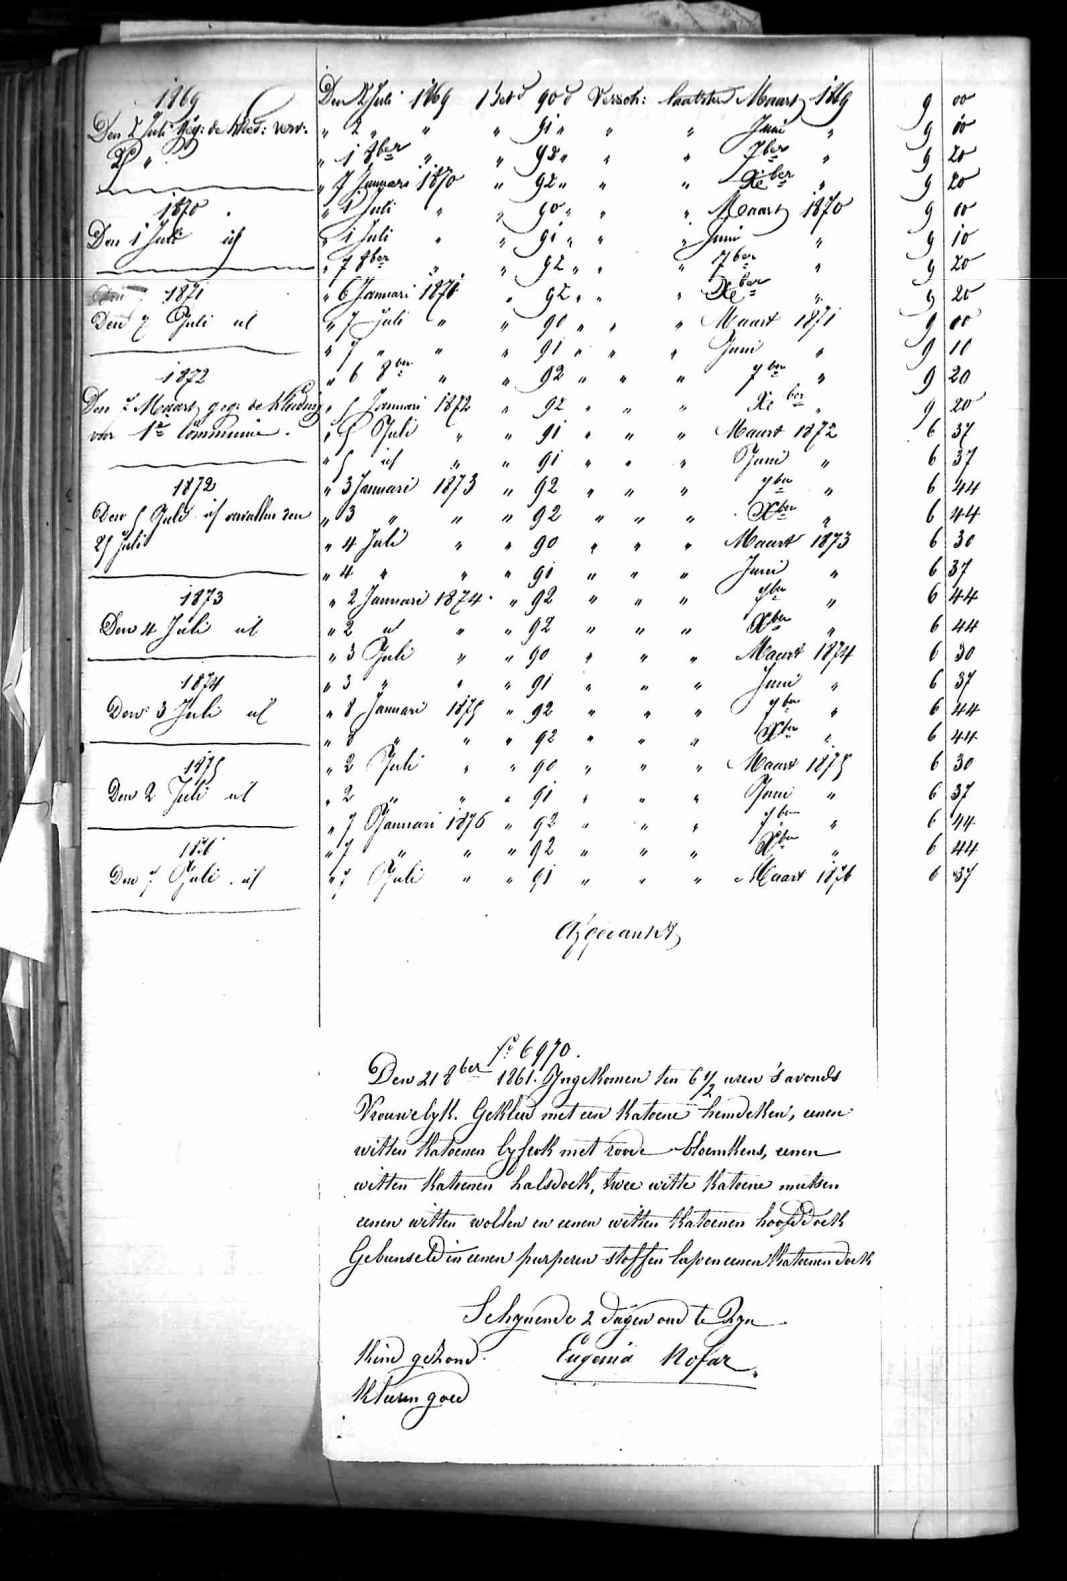 1869
Den 2 Juli geg: de kled: verv:
25 "
1870
Den 1 Juli id
1871
Den 7 Juli id
1872
Den 7 Maart geg: de kleding
voor 1e Communie.
1872
Den 5 Juli id vervallen den
25 Juli
1873
Den 4 Juli id
1874
Den 3 Juli id
1875
Den 2 Juli id
1876
Den 7 Juli id
Den 2 Juli 1869 Bet'd 90 d Versch: laatsten Maart 1869 9 00
" 2 " " " 91 " " " Juni " 9 10
" 1 8ber " " 92 " " " 7ber " 9 20
" 7 Januari 1870 " 92 " " " Xber " 9 20
" 1 Juli " " 90 " " " Maart 1870 9 00
" 1 Juli " " 91 " " " Juni " 9 10
" 7 8ber " " 92 " " " 7ber " 9 20
" 6 Januari 1871 " 92 " " " Xber " 9 20
" 7 Juli " " 90 " " " Maart 1871 9 00
" 7 " " " 91 " " " Juni " 9 10
" 6 8ber " " 92 " " " 7ber " 9 20
" 5 Januari 1872 " 92 " " " Xber " 9 20
" 5 Juli " " 91 " " " Maart 1872 6 37
" 5 id " " 91 " " " Juni " 6 37
" 3 Januari 1873 " 92 " " " 7ber " 6 44
" 3 " " " 92 " " " Xber " 6 44
" 4 Juli " " 90 " " " Maart 1873 6 30
" 4 " " " 91 " " " Juni " 6 37
" 2 Januari 1874 " 92 " " " 7ber " 6 44
" 2 id " " 92 " " " Xber " 6 44
" 3 Juli " " 90 " " " Maart 1874 6 30
" 3 " " " 91 " " " Juni " 6 37
" 8 Januari 1875 " 92 " " " 7ber " 6 44
" 8 " " " 92 " " " Xber " 6 44
" 2 Juli " " 90 " " " Maart 1875 6 30
" 2 " " " 91 " " " Juni " 6 37
" 7 Januari 1876 " 92 " " " 7ber " 6 44
" 7 " " " 92 " " " Xber " 6 44
" 7 Juli " " 91 " " " Maart 1876 6 37
Afgedankt
f° 6970.
Den 21 8ber 1861. Ingekomen ten 6 1/2 uren 's avonds
Vrouwelyk. Gekleed met een katoene hemdeken, eenen
witten katoenen lyfrok met roode bloemkens, eenen
witten katoenen halsdoek, twee witte katoene mutsen
eenen witten wollen en eenen witten katoenen hoofddoek
Gebunseld in eenen purperen stoffen lap en eenen katoenen doek
Schynende 2 dagen oud te Zyn
Kind gezond. Eugenia Rofar.
Kleeren goed